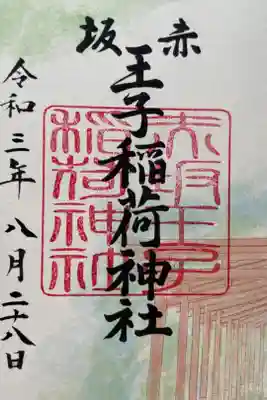 赤坂
王子稲荷神社
令和三年八月二十八日
赤坂王子
稲荷神社